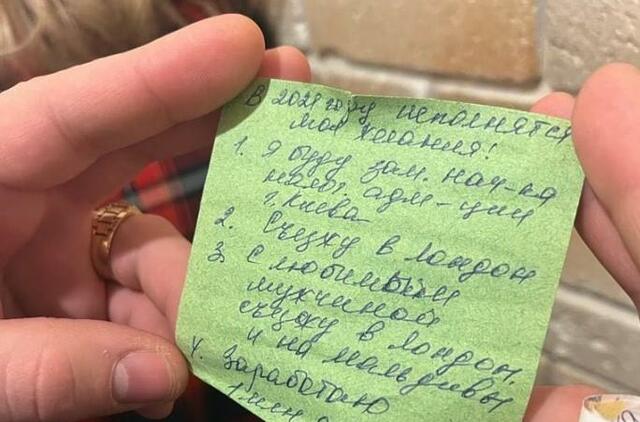 В 2021 году исполнятся
мои желания!
1. Я буду зам. нач-ка
налог. адм-ции
г. Киева
2. Съезжу в Лондон
3. С любимым
мужчиной
съезжу в Лондон,
и на Мальдивы
4. Заработаю
1 млн